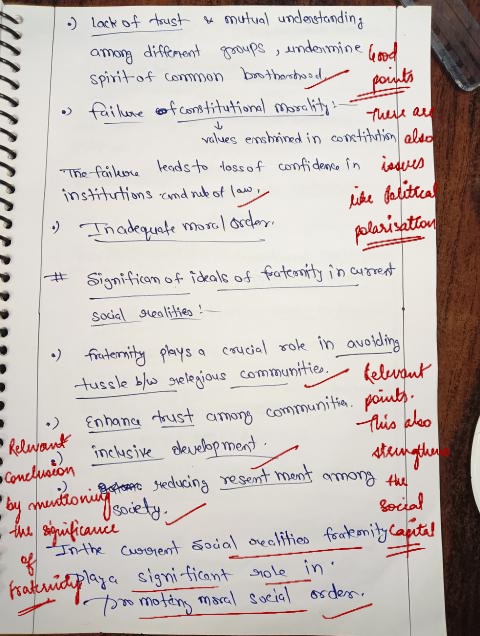 •) Lack of trust & mutual understanding
among different groups, undermine
spirit of common brotherhood.
Good
points
•) failure of constitutional morality:-
values enshrined in constitution
The failure leads to loss of confidence in
institutions and rule of law.
There are
also
issues
like Political
polarisation
•) Inadequate moral order.
# Significan of ideals of fraternity in current
social realities:-
•) fraternity plays a crucial role in avoiding
tussle b/w relegious communities.
•) Enhance trust among communities.
•) inclusive development.
•) reducing resentment among
society.
Relevant
points.
This also
strengthens
the
Social
Capital
In the current social realities fraternity
playa significant role in
promoting moral social order.
Relevant
conclusion
by mentioning
the significance
of
Fraternity